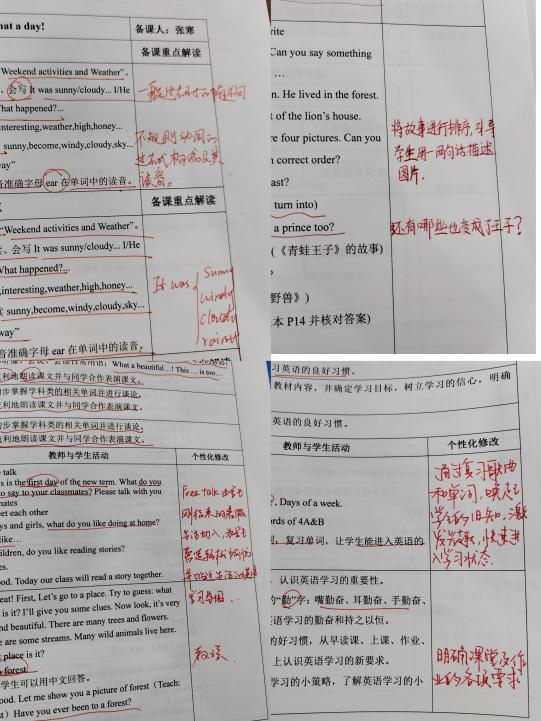 hat a day!
备课人：张寒
备课重点解读
Weekend activities and Weather"。
、会写 It was sunny/cloudy... I/He
What happened?...
interesting,weather,high,honey...
sunny,become,windy,cloudy,sky...
way"
音准确字母 ear 在单词中的读音。
不规则动词的
过去式
读音。
备课重点解读
"Weekend activities and Weather"。
、会写 It was sunny/cloudy... I/He
What happened?...
,interesting,weather,high,honey...
sunny,become,windy,cloudy,sky...
way"
音准确字母 ear 在单词中的读音。
It was
sunny
windy
cloudy
rainy
rite
Can you say something
…
n. He lived in the forest.
t of the lion's house.
re four pictures. Can you
n correct order?
ast?
turn into)
a prince too?
(《青蛙王子》的故事)
)
野兽》)
本 P14 并核对答案)
将故事进行排序，引导
学生用一两句话描述
图片.
还有哪些也变成了王子？
What a beautiful…! This … is too…
利地朗读课文并与同学合作表演课文。
步掌握学科类的相关单词并进行谈论。
利地朗读课文并与同学合作表演课文。
步掌握学科类的相关单词并进行谈论。
利地朗读课文并与同学合作表演课文。
教师与学生活动
个性化修改
e talk
s is the first day of the new term. What do you
to say to your classmates? Please talk with you
mates
eet each other
ys and girls, what do you like doing at home?
like…
hildren, do you like reading stories?
es.
ood. Today our class will read a story together.
eat! First, Let's go to a place. Try to guess: what
is it? I'll give you some clues. Now look, it's very
nd beautiful. There are many trees and flowers.
e are some streams. Many wild animals live here.
t place is it?
forest.
学生可以用中文回答。
ood. Let me show you a picture of forest（Teach:
st）Have you ever been to a forest?
Free talk
刚结束的暑假
习英语的良好习惯。
教材内容，并确定学习目标，树立学习的信心，明确
英语的良好习惯。
教师与学生活动
个性化修改
, Days of a week.
ords of 4A&B
，复习单词，让学生能进入英语的
认识英语学习的重要性。
的"勤"字；嘴勤奋、耳勤奋、手勤奋、
语学习的勤奋和持之以恒。
的好习惯，从早读课、上课、作业、
上认识英语学习的新要求。
学习的小策略，了解英语学习的小
通过复习歌曲
和单词，唤起
学生的旧知，激
发兴趣，快速进
入学习状态.
明确课堂及作
业的各项要求